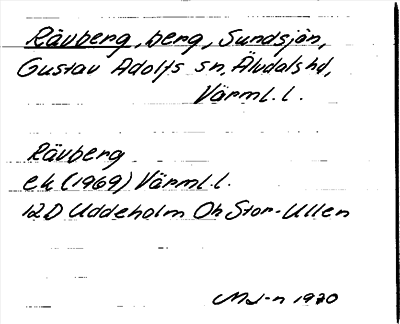 Rävberg, berg, Sundsjön,
Gustav Adolfs sn, Älvdals hd,
Värml. l.
Rävberg
ek (1969) Värml. l.
12D Uddeholm Öh Stor-Ullen
MJ-n 1970